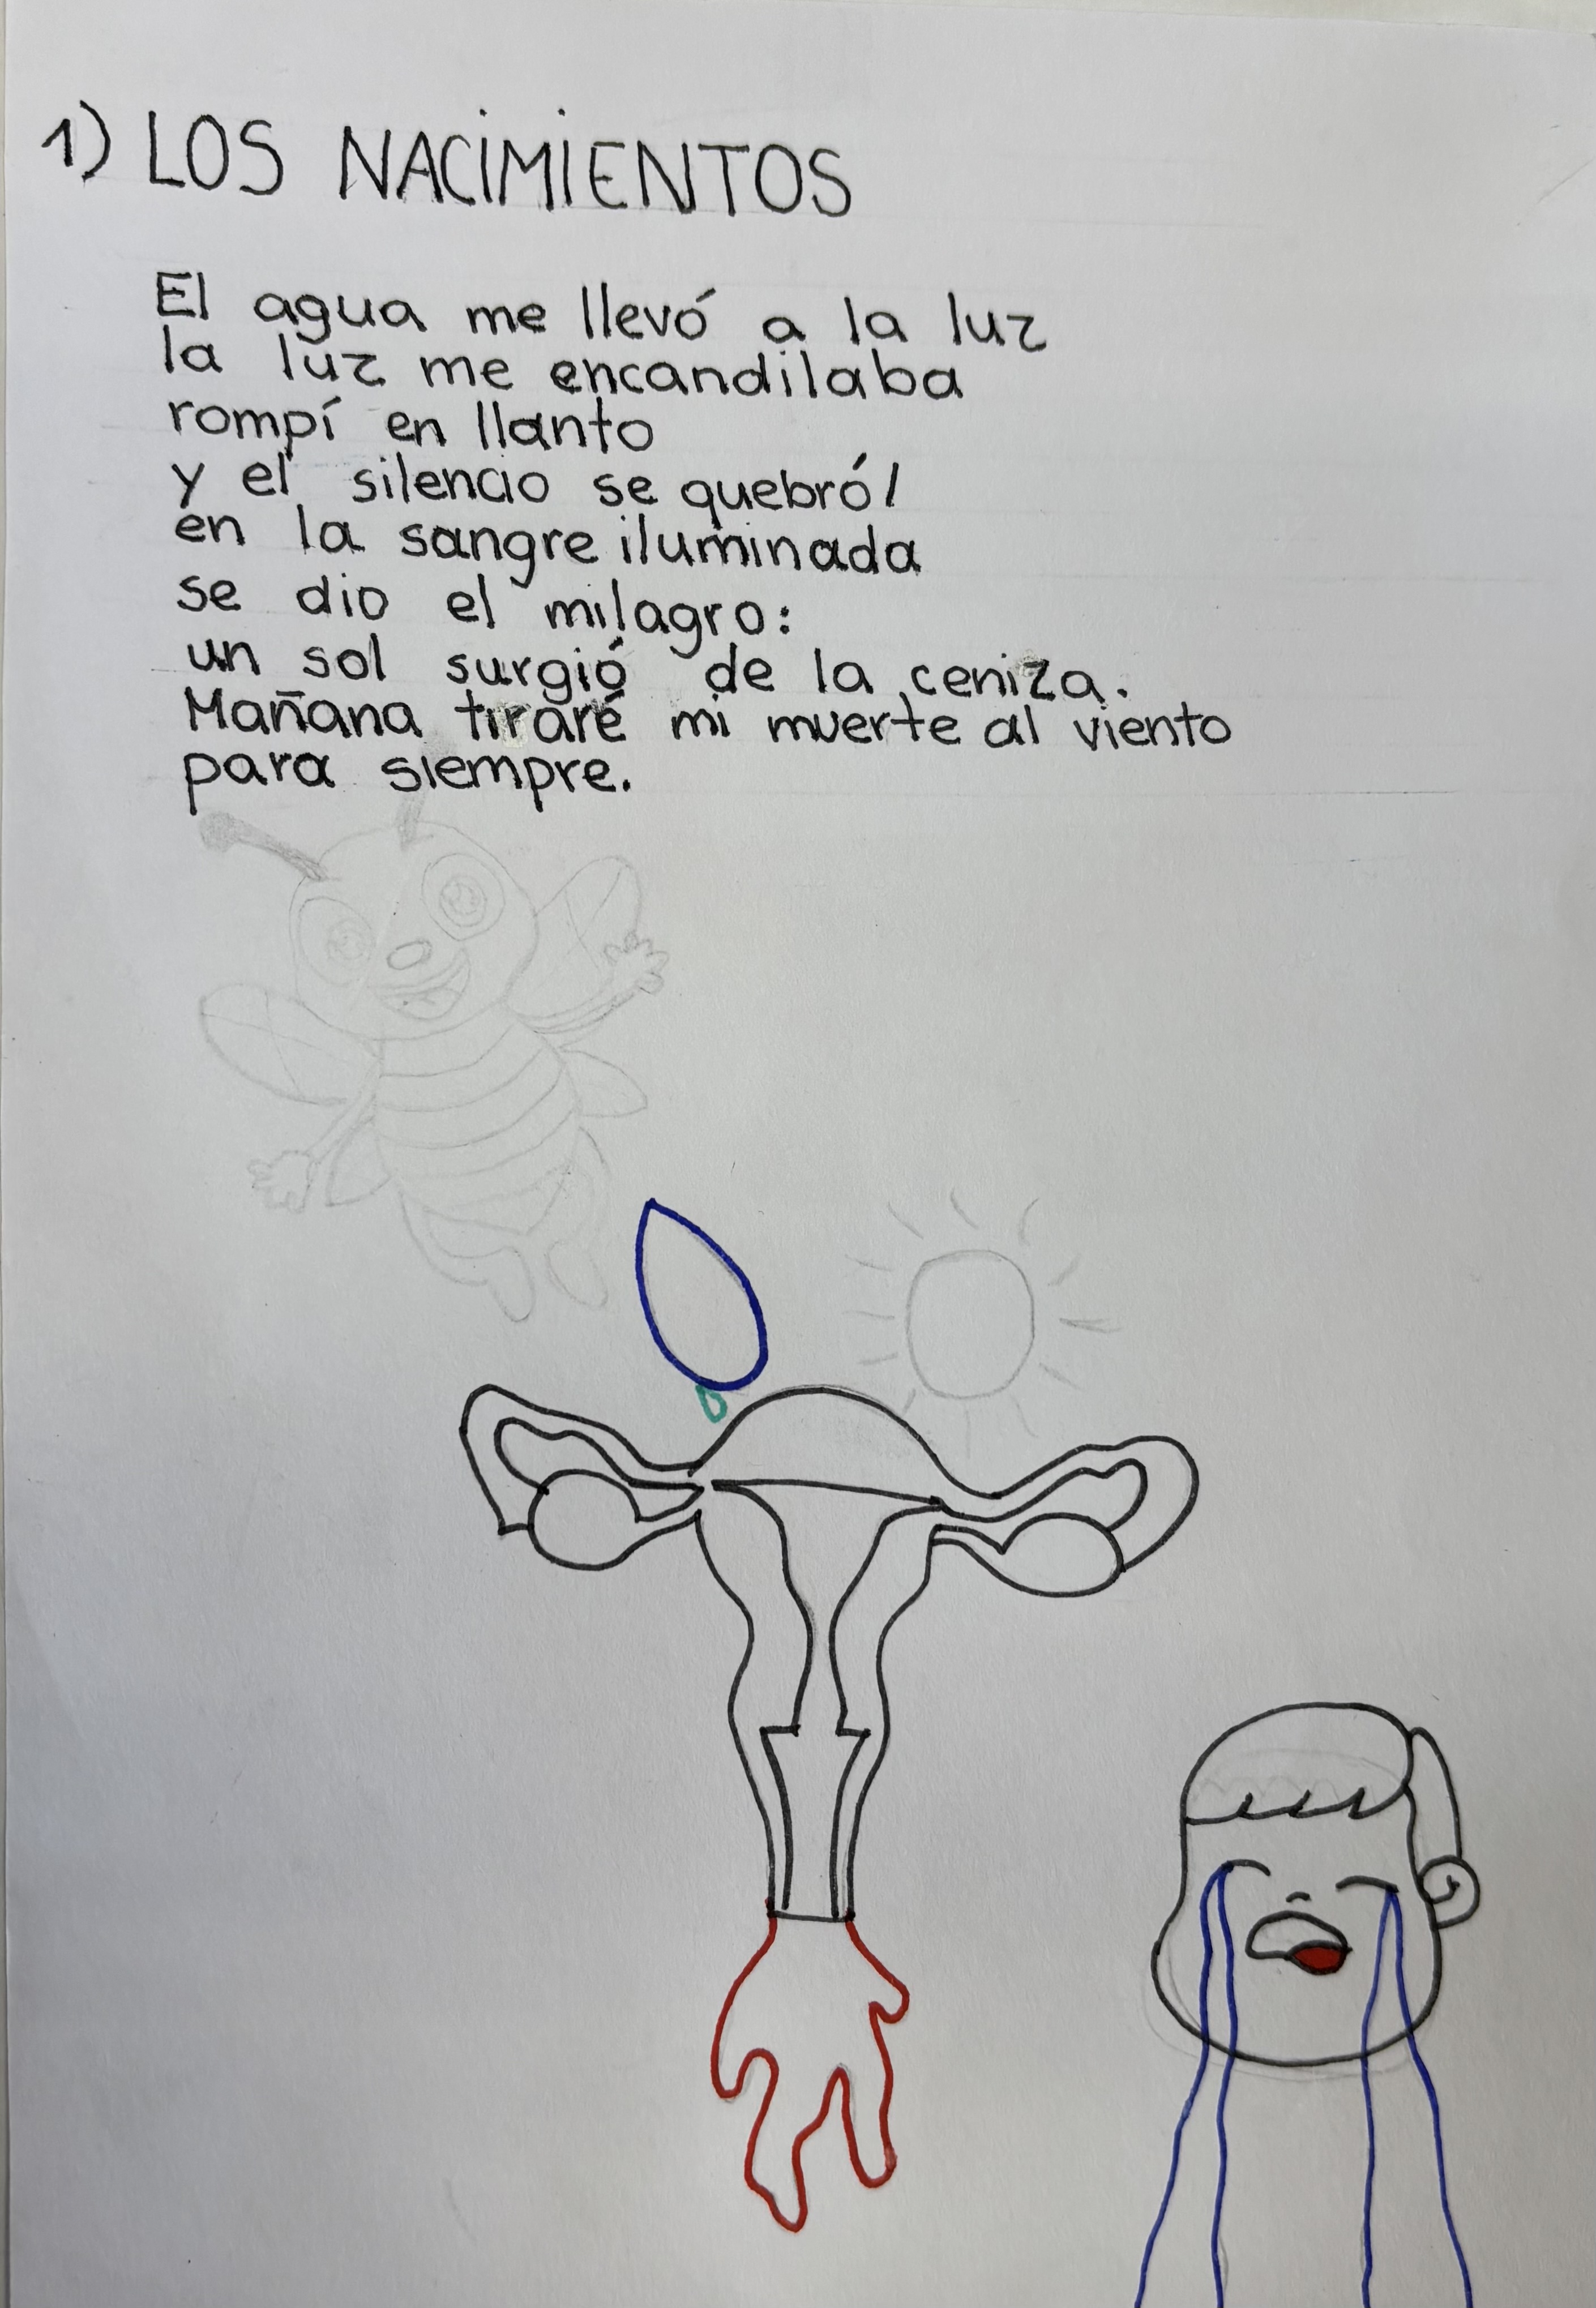 1) LOS NACIMIENTOS
El agua me llevó a la luz
la luz me encandilaba
rompí en llanto
y el silencio se quebró/
en la sangre iluminada
se dio el milagro:
un sol surgió de la ceniza.
Mañana tiraré mi muerte al viento
para siempre.